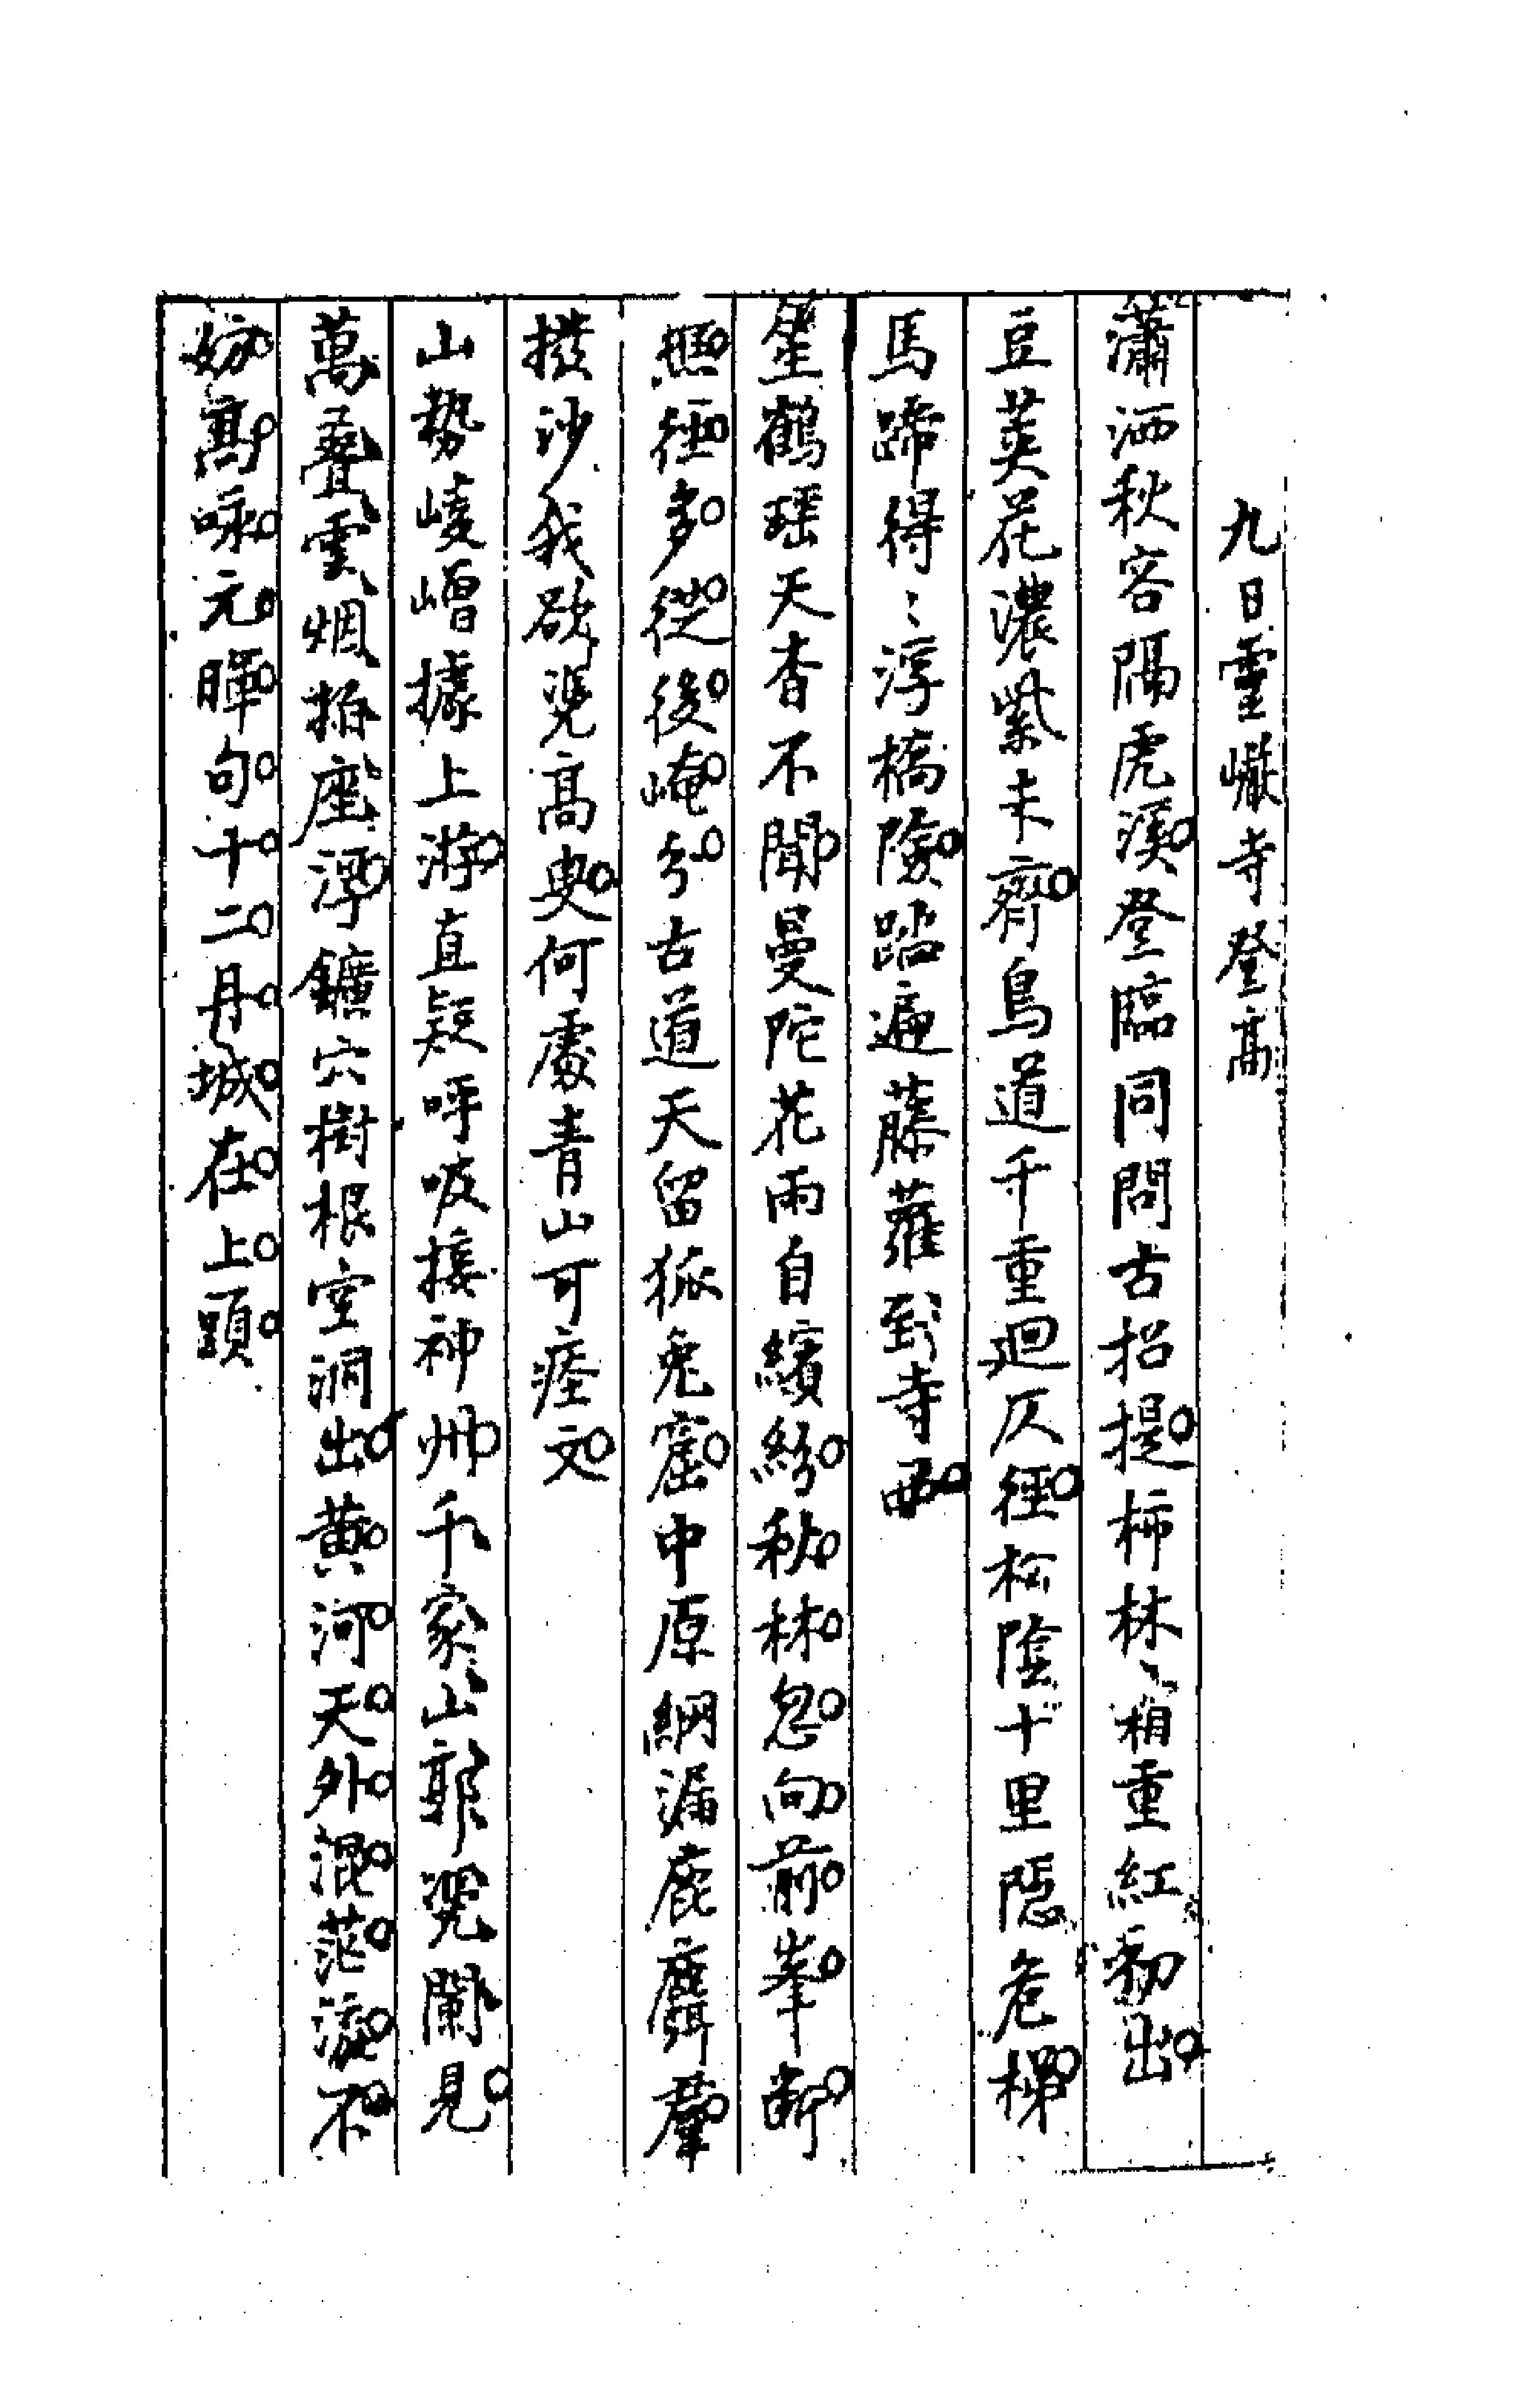 九日靈巘寺登高
瀟洒秋容隔虎溪登臨同問古招提柿林、稍重紅初出
豆莢花濃紫未齊鳥道千重迴仄徑松陰十里隱危梯
馬蹄得〻浮橋險踏遍藤蘿到寺西
笙鶴瑤天杳不聞曼陀花雨自繽紛秋林忽向前峯斷
樵徑多從後崦分古道天留狐兔窟中原網漏鹿麏羣
撥沙我欲覓高叟何處青山可瘞文
山勢崚嶒據上游直疑呼吸接神州千家山郭覓闌見
萬疊雲烟拍座浮鑛穴樹根空洞出黃河天外混茫流不
妨高咏元暉句十二丹城在上頭